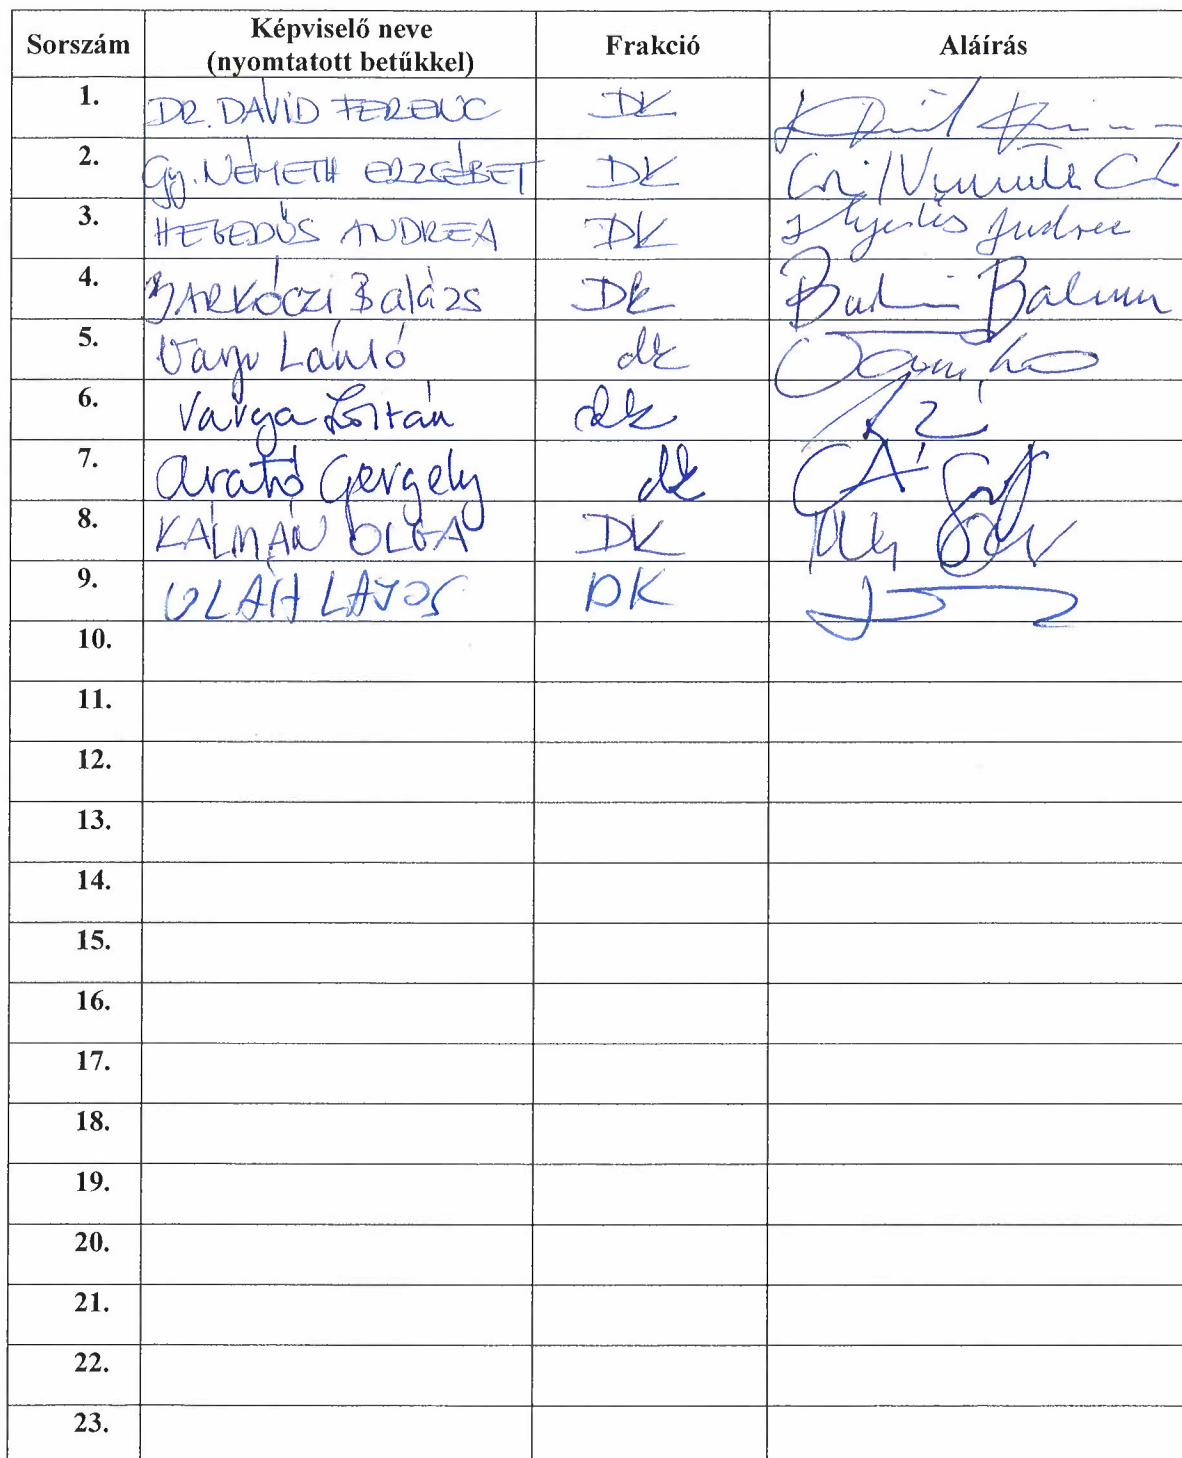 Sorszám Képviselő neve (nyomtatott betűkkel) Frakció Aláírás
1. DR. DÁVID FERENC DK
2. Gy. NÉMETH ERZSÉBET DK
3. HEGEDŰS ANDREA DK Hegedűs Andrea
4. BARKÓCZI Balázs DK
5. Varju László dk
6. Varga Zoltán dk
7. Arató Gergely dk
8. KÁLMÁN OLGA DK
9. OLÁH LAJOS DK
10.
11.
12.
13.
14.
15.
16.
17.
18.
19.
20.
21.
22.
23.